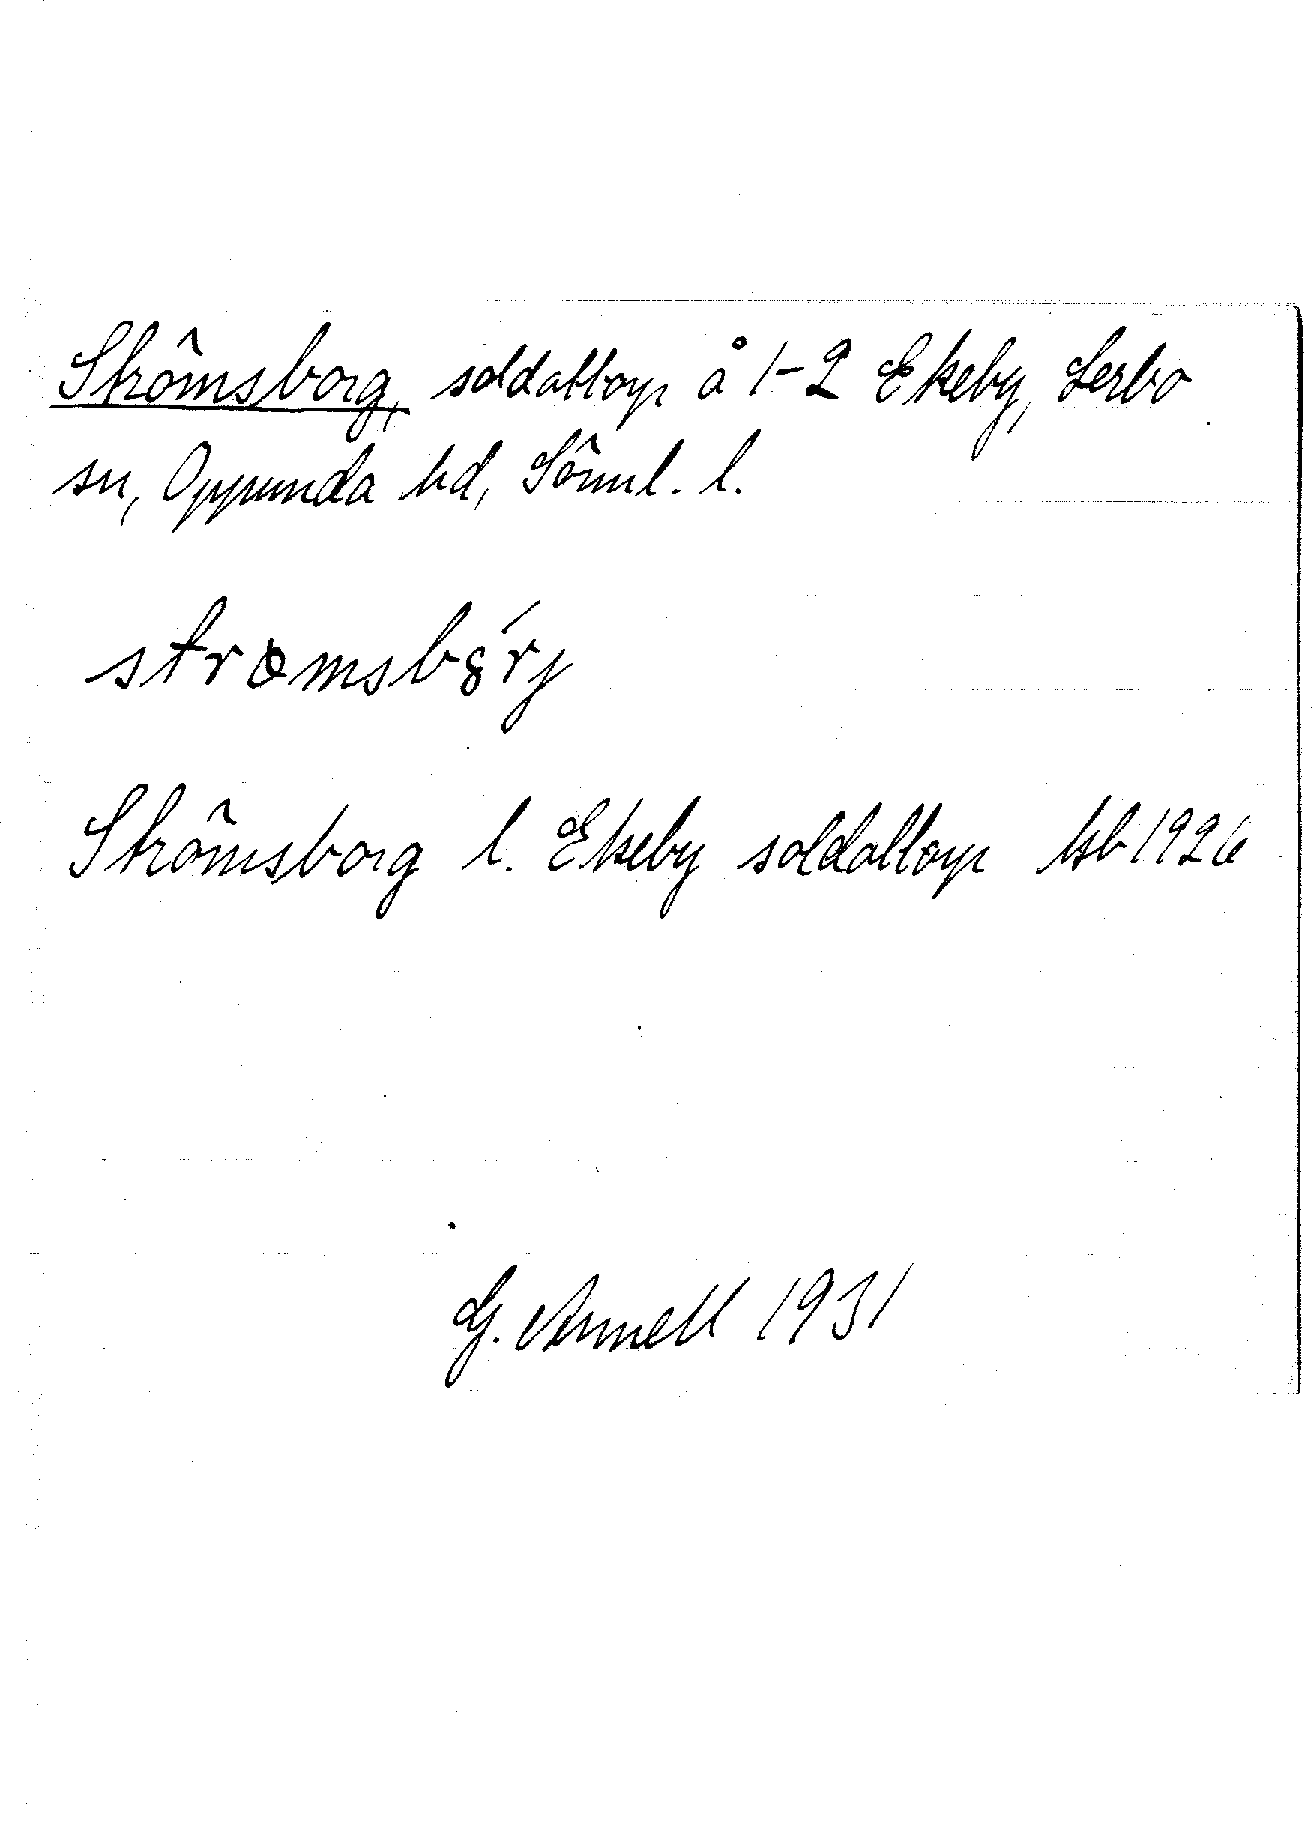 Strömsborg, soldattorp å 1-2 Ekeby, Lerbo
sn, Oppunda hd, Sörml. l.
strömsbȯ́rj
Strömsborg l. Ekeby soldattorp hfl 1926
G. Annell 1931